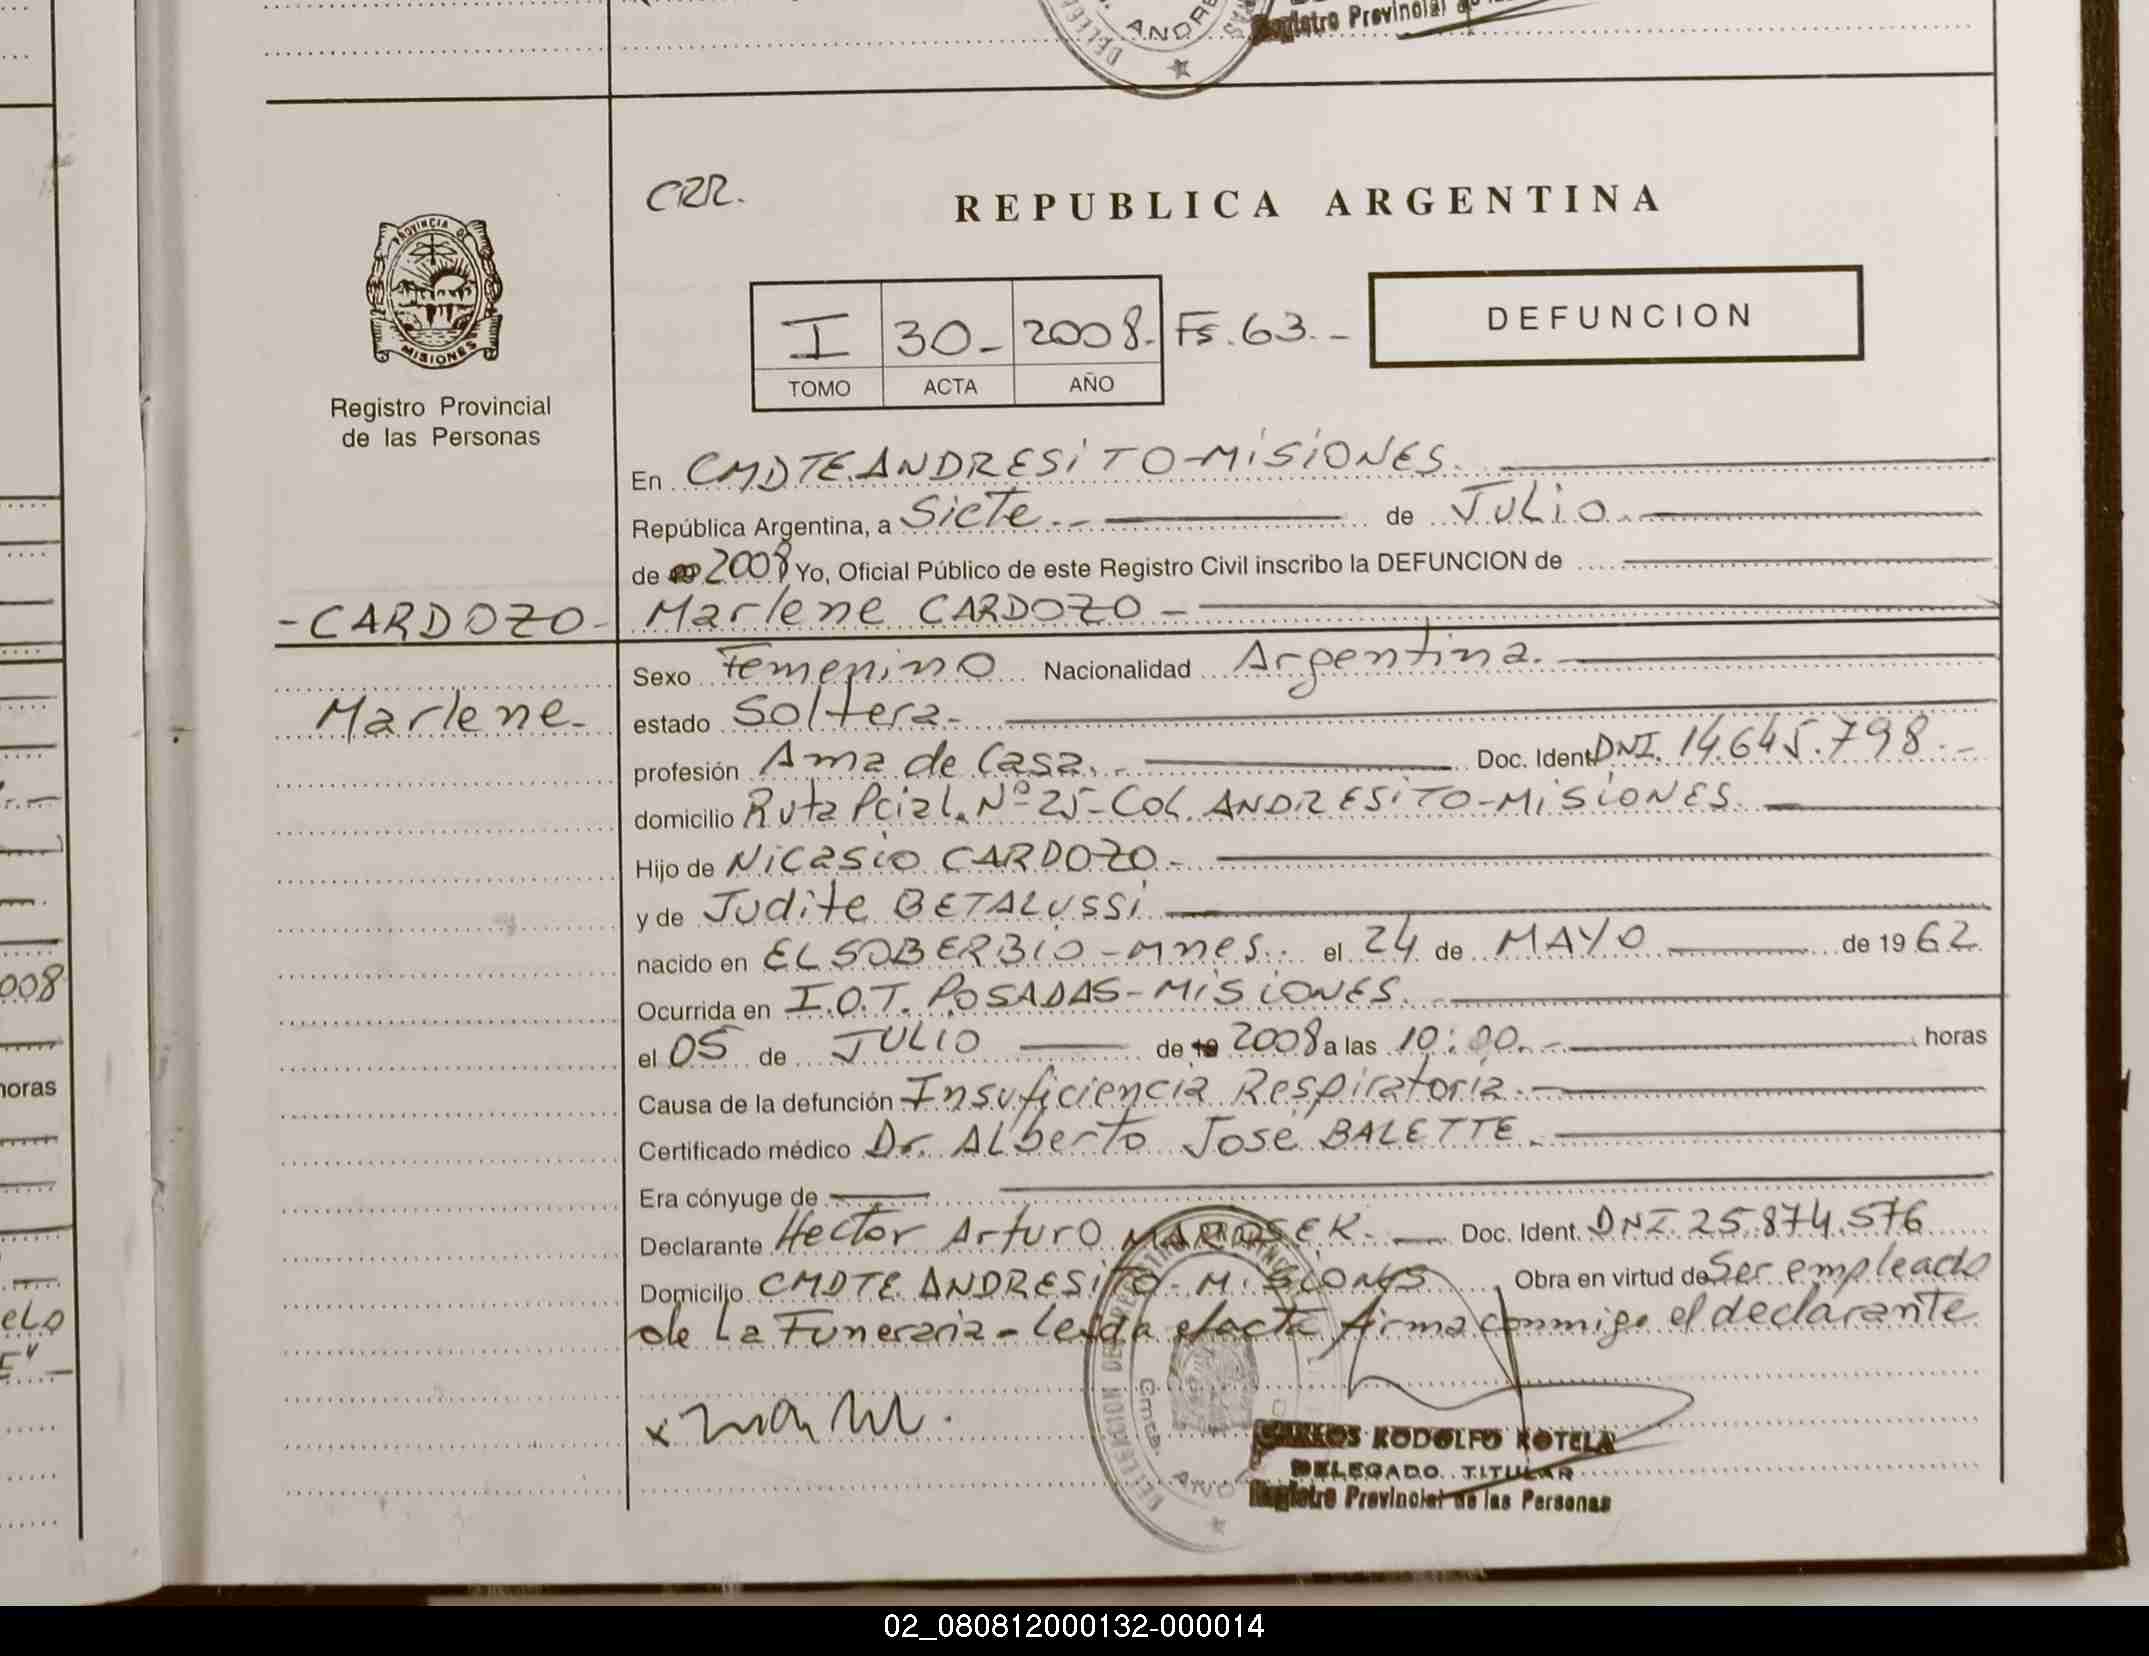 Registro Provincial
DELEGA
ANDRE
CRR.
REPUBLICA ARGENTINA
PROVINCIA DE
MISIONES
I 30- 2008.- Fs. 63.-
TOMO ACTA AÑO
DEFUNCION
Registro Provincial
de las Personas
En CMDTE.ANDRESITO-MISIONES.
República Argentina, a Siete.- de JULIO.
de 2008 Yo, Oficial Público de este Registro Civil inscribo la DEFUNCION de
-CARDOZO- Marlene CARDOZO-
Sexo Femenino Nacionalidad Argentina.
Marlene- estado Soltera-
profesión Ama de Casa.- Doc. Ident. DNI. 14.645.798.-
domicilio Ruta Pcial. Nº 25-Col. ANDRESITO-MISIONES.
Hijo de Nicasio CARDOZO.-
y de Judite BETALUSSI
nacido en EL SOBERBIO-Mnes. el 24 de MAYO de 1962.
Ocurrida en I.O.T. POSADAS-MISIONES.
el 05 de JULIO de 19 2008 a las 10:00.- horas
Causa de la defunción Insuficiencia Respiratoria.-
Certificado médico Dr. Alberto José BALETTE.
Era cónyuge de
Declarante Hector Arturo MAROSEK. Doc. Ident. DNI 25.874.576
Domicilio CMDTE ANDRESITO-MISIONES Obra en virtud de Ser empleado
de La Funeraria-Leída el acta firma conmigo el declarante
CARLOS RODOLFO ROTELA
DELEGADO TITULAR
Registro Provincial de las Personas
008
horas
02_080812000132-000014